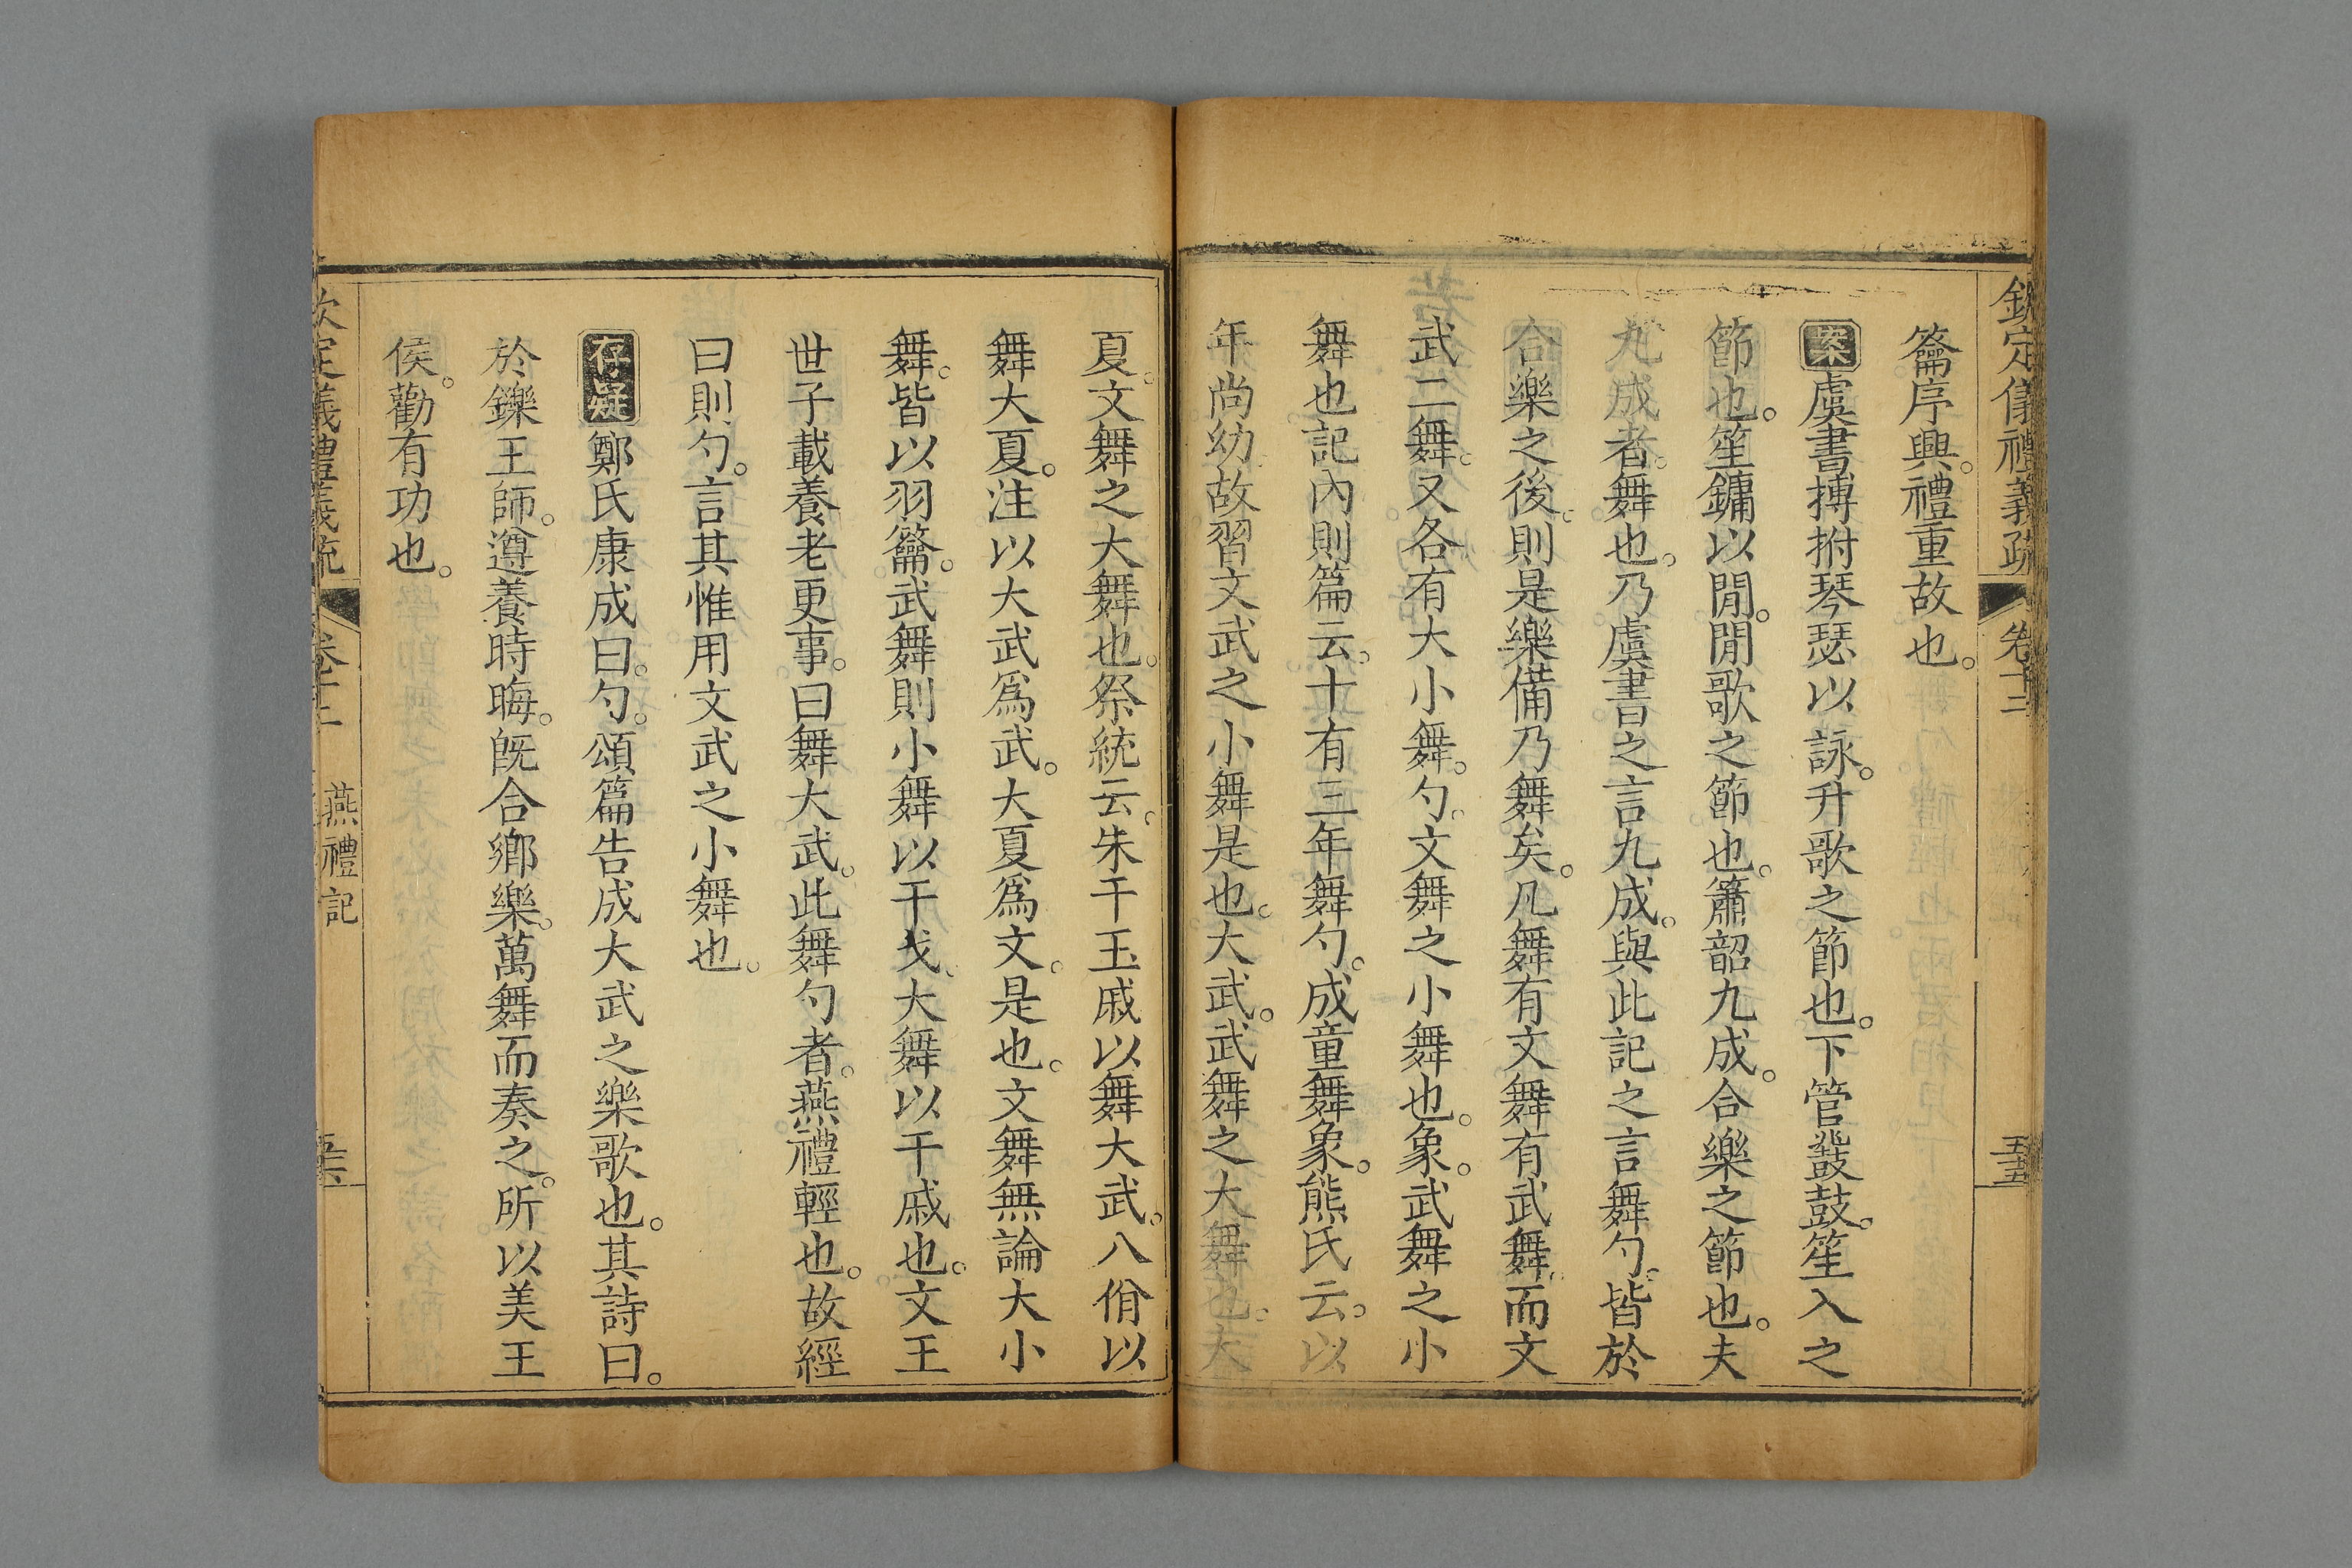 欽定儀禮義疏 卷十二 五五
籥序興。禮重故也。
案虞書搏拊琴瑟以詠。升歌之節也。下管鼗鼓。笙入之
節也。笙鏞以閒。閒歌之節也。簫韶九成。合樂之節也。夫
九成者。舞也。乃虞書之言九成。與此記之言舞勺。皆於
合樂之後。則是樂備乃舞矣。凡舞有文舞有武舞。而文
武二舞。又各有大小舞。勺。文舞之小舞也。象。武舞之小
舞也記內則篇云。十有三年舞勺。成童舞象。熊氏云。以
年尚幼。故習文武之小舞是也。大武。武舞之大舞也。大
夏。文舞之大舞也。祭統云。朱干玉戚以舞大武。八佾以
舞大夏。注以大武爲武。大夏爲文。是也。文舞無論大小
舞。皆以羽籥。武舞則小舞以干戈。大舞以干戚也。文王
世子載養老更事。曰舞大武。此舞勺者。燕禮輕也。故經
曰則勺。言其惟用文武之小舞也。
存疑鄭氏康成曰。勺。頌篇告成大武之樂歌也。其詩曰。
於鑠王師。遵養時晦。旣合鄉樂。萬舞而奏之。所以美王
侯。勸有功也。
欽定儀禮義疏 卷十二 燕禮記